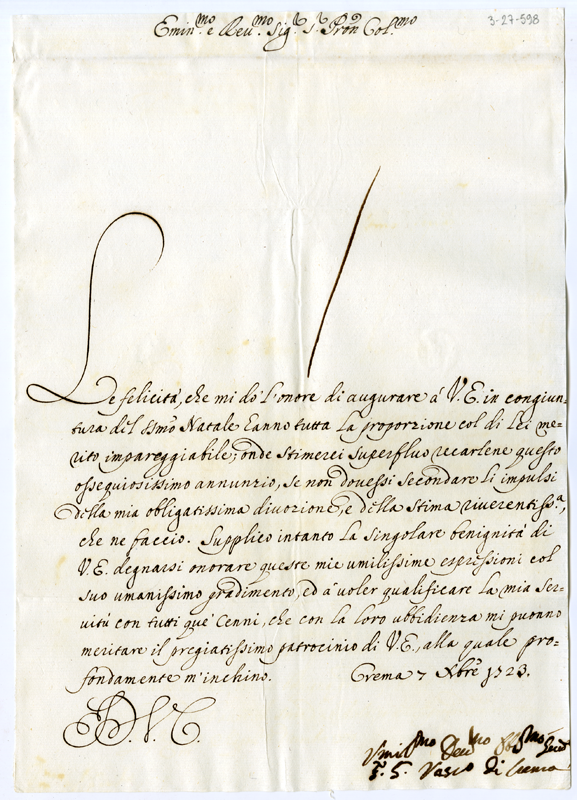 Emin.mo e Reu.mo Sig.r S.r Pron Col.mo
3-27-598
Le felicità, che mi dò l'onore di augurare à V.E. in congiun-
tura del SSmo Natale hanno tutta la proporzione col di Lei me-
rito impareggiabile; onde stimerei superfluo recarlene questo
ossequiosissimo annunzio, se non douessi secondare li impulsi
della mia obligatissima diuozione, e della stima riuerentiss.a,
che ne faccio. Supplico intanto la singolare benignità di
V.E. degnarsi onorare queste mie umilissime espressioni col
suo umanissimo gradimento, ed à voler qualificare la mia ser-
uitù con tutti que' Cenni, che con la loro ubbidienza mi puonno
meritare il pregiatissimo patrocinio di V.E., alla quale pro-
fondamente m'inchino. Crema 7 Xbre 1723.
D.V.E.
Vmil.mo Deu.mo Obl.mo Seru
F. S. Vasco di Crema